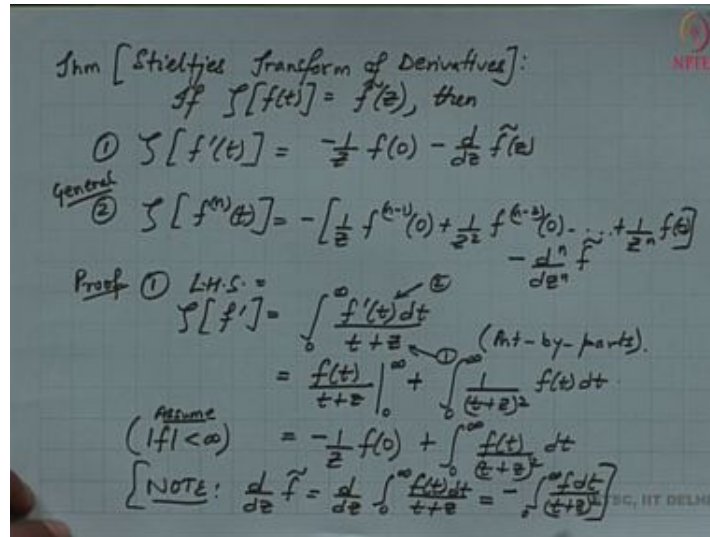 Thm [Stieltjes Transform of Derivatives]:
If ζ[f(t)] = f̃(z), then
① ζ[f'(t)] = -1/z f(0) - d/dz f̃(z)
General
② ζ[f^(n)(t)] = -[1/z f^(n-1)(0) + 1/z² f^(n-2)(0) - .... + 1/z^n f(0)]
- d^n/dz^n f̃
Proof ① L.H.S. =
ζ[f'] = ∫₀^∞ f'(t)dt/(t+z) ② ① (Int-by-parts).
= f(t)/(t+z) |₀^∞ + ∫₀^∞ 1/(t+z)² f(t)dt.
Assume
(|f|<∞) = -1/z f(0) + ∫₀^∞ f(t)/(t+z)² dt
[NOTE: d/dz f̃ = d/dz ∫₀^∞ f(t)dt/(t+z) = -∫₀^∞ fdt/(t+z)²]
NPTE
TSC, IIT DELHI